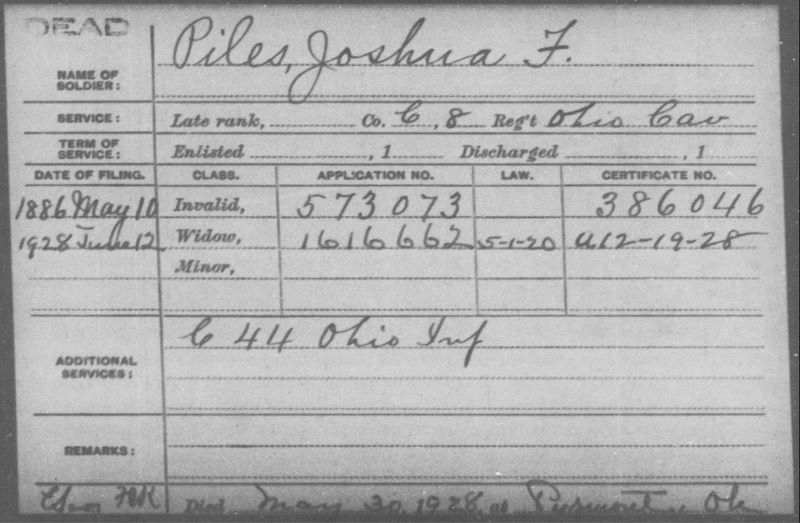 DEAD
NAME OF SOLDIER: Piles, Joshua F.
SERVICE: Late rank, Co. C, 8 Reg't Ohio Cav
TERM OF SERVICE: Enlisted , 1 Discharged , 1
DATE OF FILING. CLASS. APPLICATION NO. LAW. CERTIFICATE NO.
1886 May 10 Invalid, 573073 386046
1928 June 12 Widow, 1616662 5-1-20 a12-19-28
Minor,
ADDITIONAL SERVICES: C 44 Ohio Inf
REMARKS:
Died May 30, 1928, at